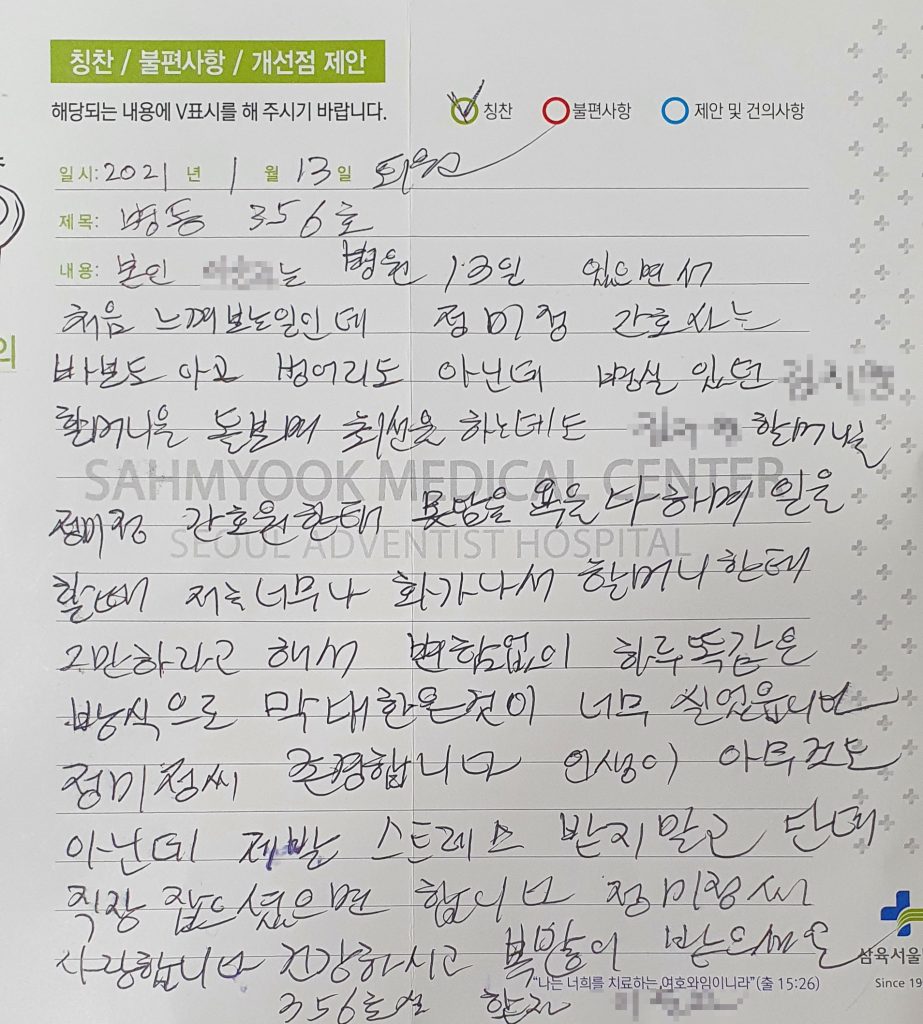 칭찬 / 불편사항 / 개선점 제안
해당되는 내용에 V표시를 해 주시기 바랍니다. 칭찬 불편사항 제안 및 건의사항
일시: 2021 년 1 월 13 일 퇴원
제목: 병동 356호
내용: 본인 는 병원 13일 있으면서
처음 느껴보는일인데 정미정 간호사는
바보도 아고 벙어리도 아닌데 병실 있던
할머니을 돌보며 최선을 하는데도 할머니님
SAHMYOOK MEDICAL CENTER
정미정 간호원한태 못담을 욕을 다하며 일을
SEOUL ADVENTIST HOSPITAL
할때 저는너무나 화가나서 할머니한태
그만하라고 해서 변함없이 하루똑같은
방식으로 막대한은것이 너무 싫었읍니다
정미정씨 존경합니다 인생이 아무것도
아닌데 제발 스트레스 받지말고 단데
직장 잡으셨으면 합니다 정미정씨
사랑합니다 건강하시고 복많이 받으세요
삼육서울
"나는 너희를 치료하는 여호와임이니라"(출 15:26)
Since 19
356호실 환자
의